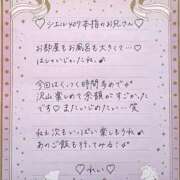 ♡シエルメロウ本指のお兄さん♡
お部屋もお風呂も大きくて…♡
はしゃいじゃったね。
今回はくっつく時間多めで♡
沢山楽しめて余韻がすごかった
です♡またしいじめたい…笑
ねぇ次もいっぱい楽しもうね
あのご飯も行ってみよ〜！
♡れい♡